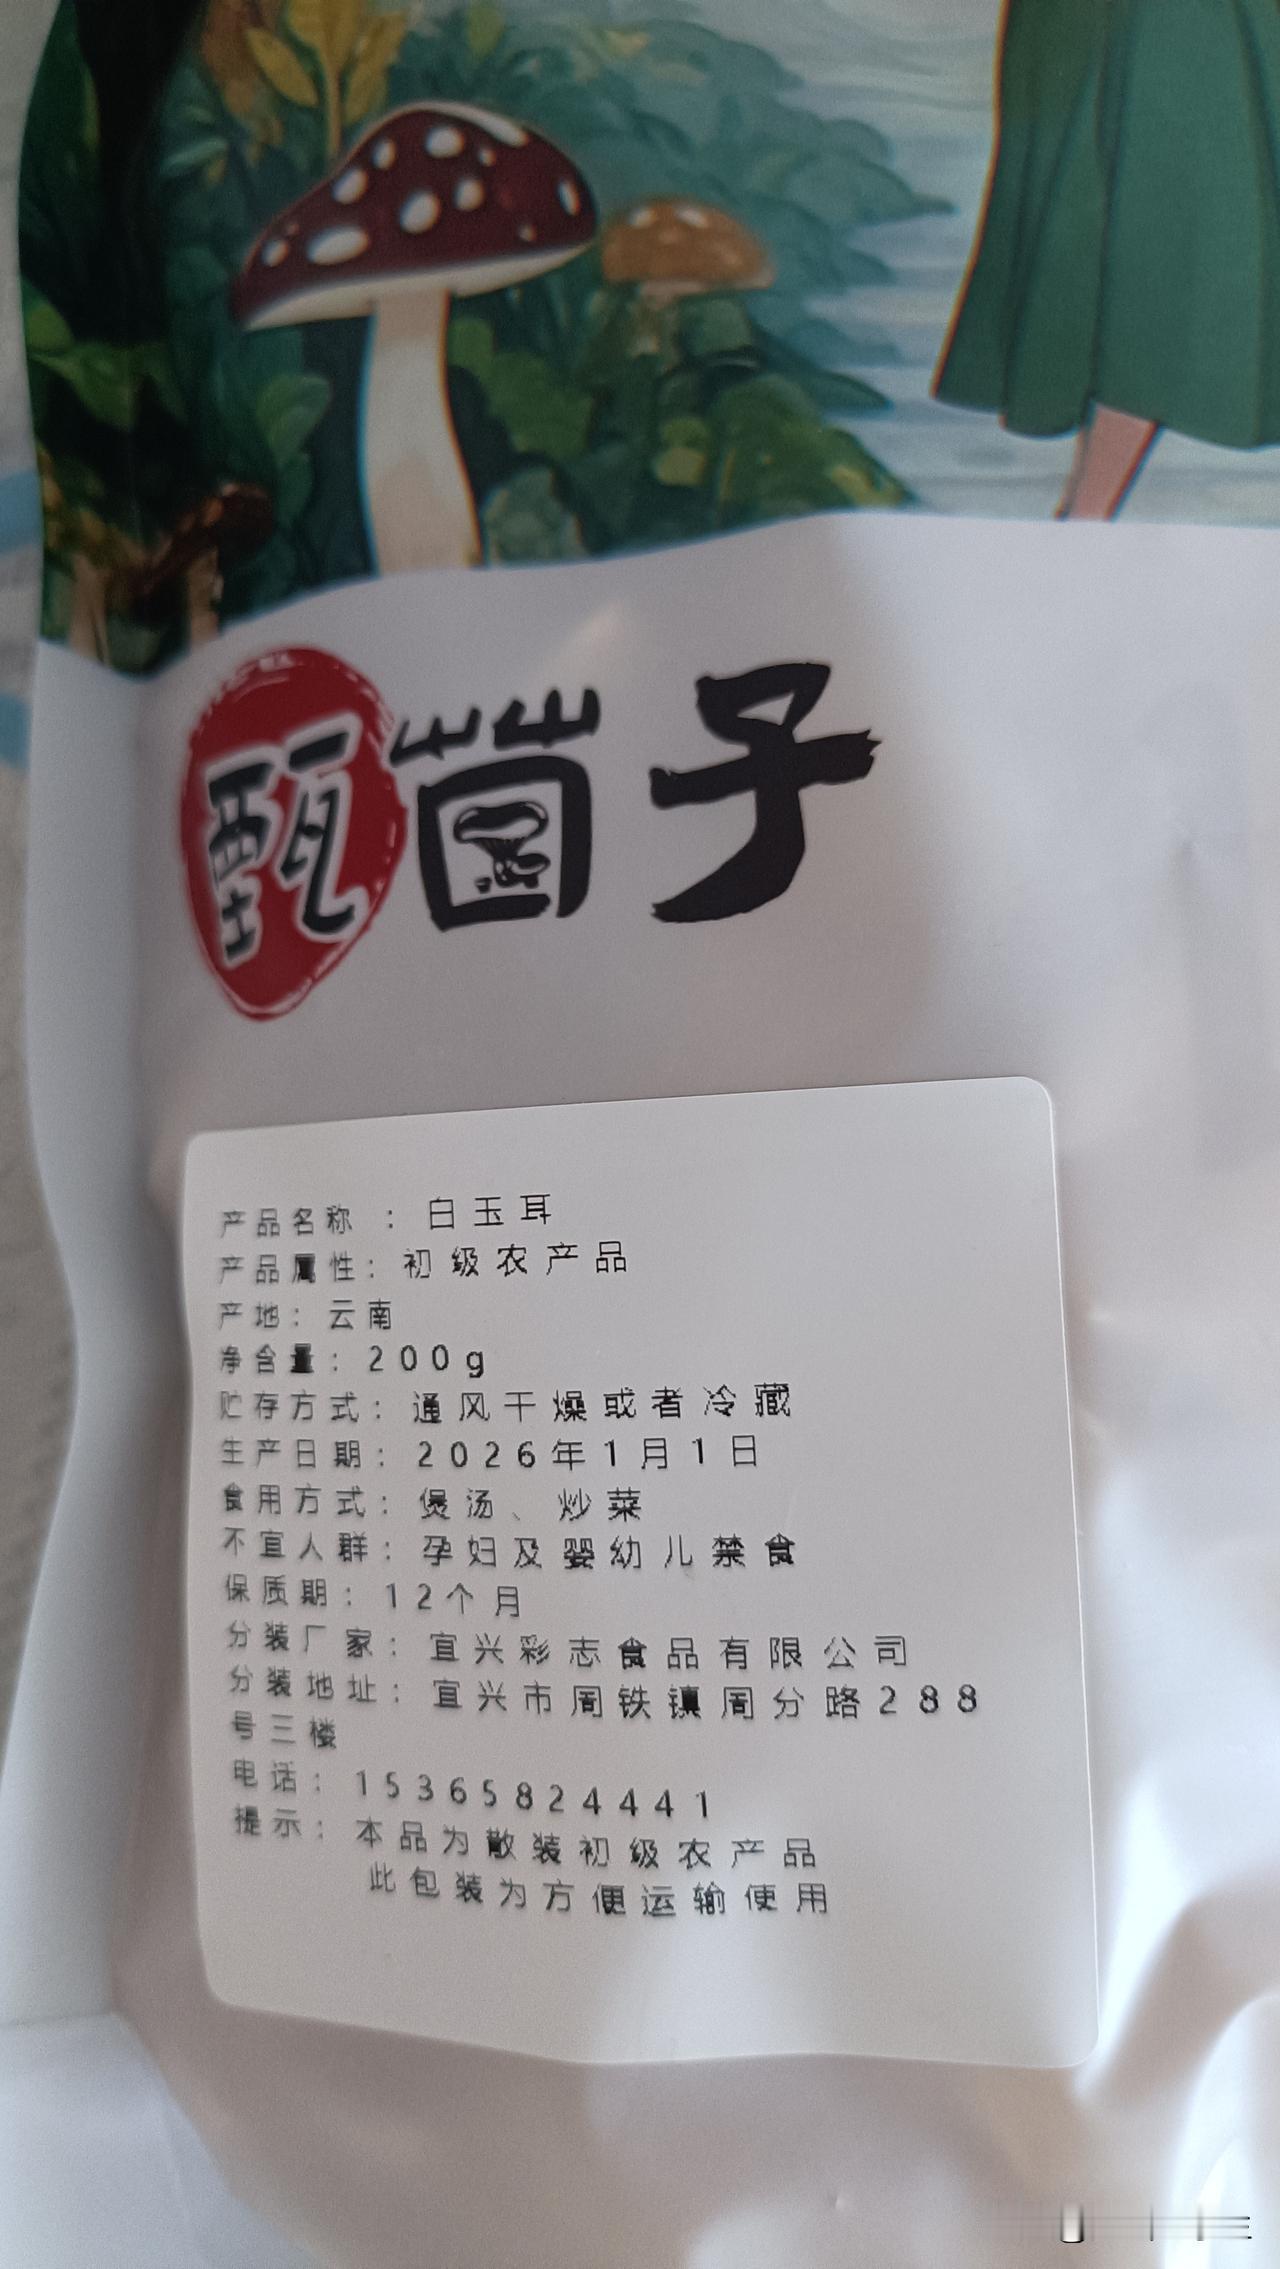 甄菌子
产品名称：白玉耳
产品属性：初级农产品
产地：云南
净含量：200g
贮存方式：通风干燥或者冷藏
生产日期：2026年1月1日
食用方式：煲汤、炒菜
不宜人群：孕妇及婴幼儿禁食
保质期：12个月
分装厂家：宜兴彩志食品有限公司
分装地址：宜兴市周铁镇周分路288
号三楼
电话：15365824441
提示：本品为散装初级农产品
此包装为方便运输使用